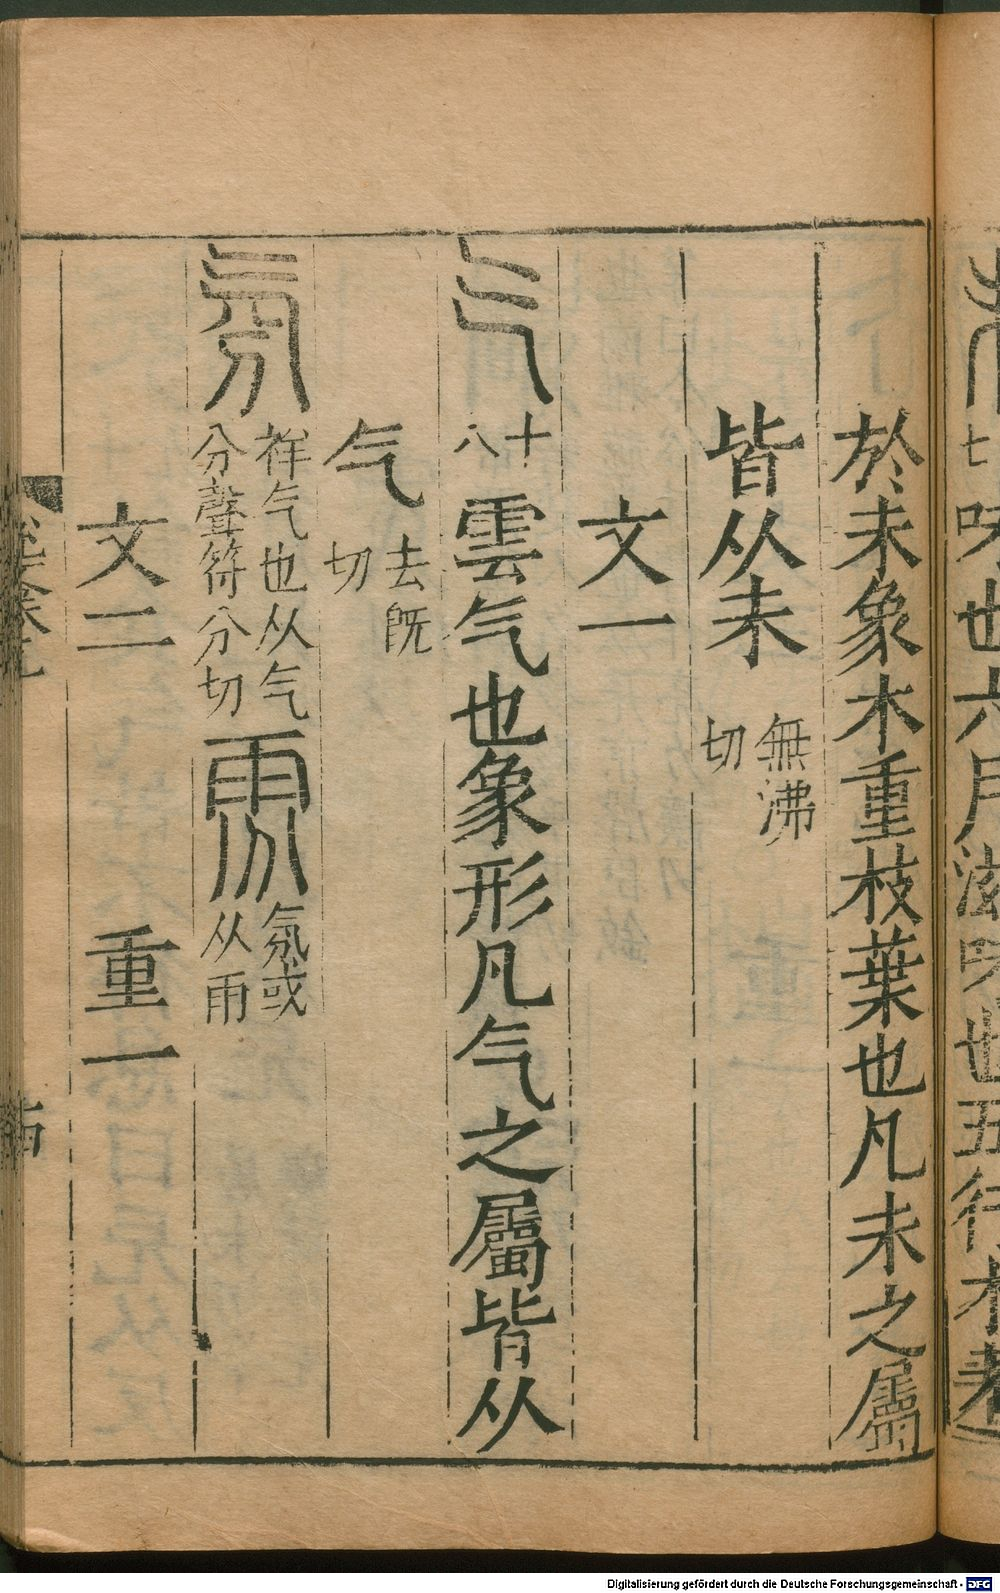 七 味也六月滋味也五行木老
於未象木重枝葉也凡未之屬
皆从未 無沸切
文一
气 十八 雲气也象形凡气之屬皆从
气 去既切
氛 祥气也从气分聲符分切 雰 氛或从雨
文二 重一
Digitalisierung gefördert durch die Deutsche Forschungsgemeinschaft - DFG